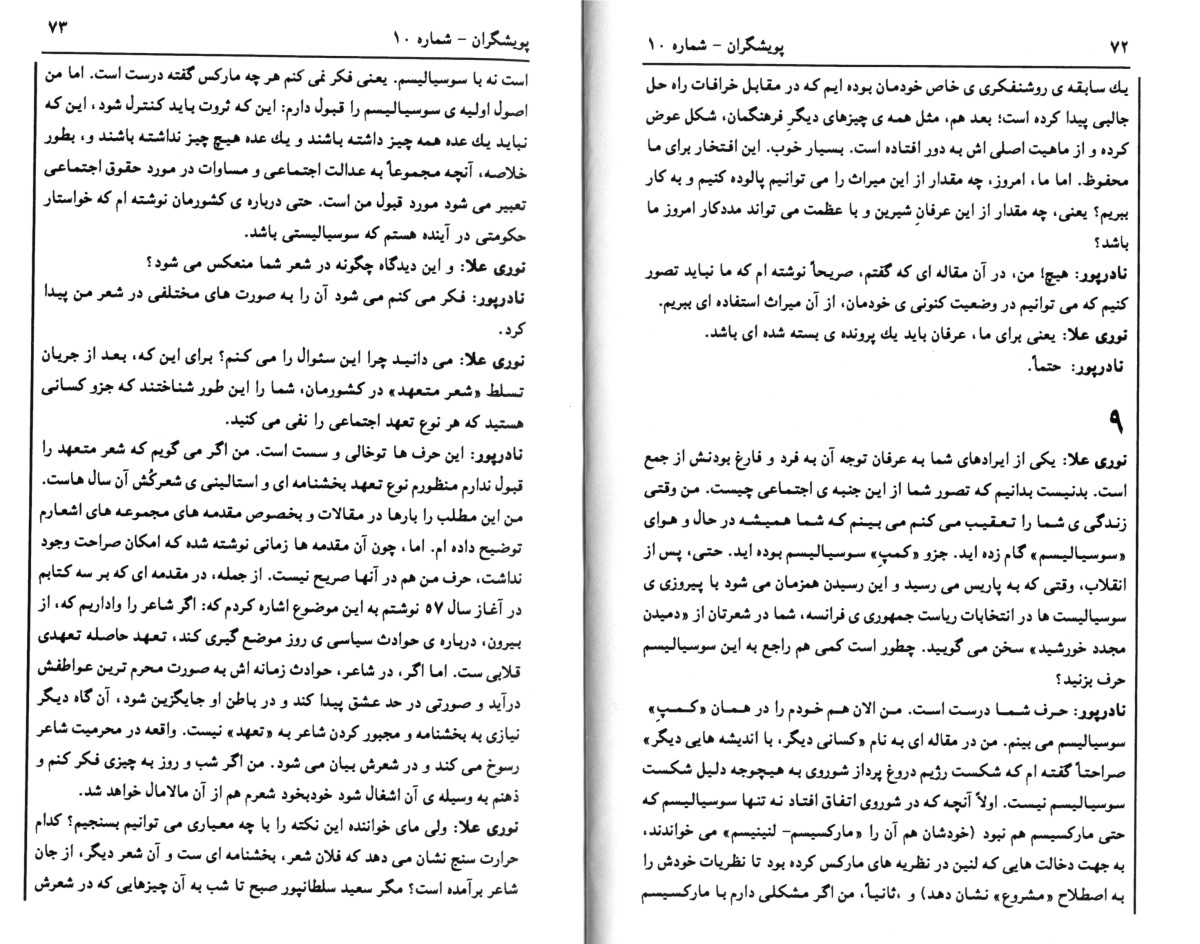 ۷۲
پویشگران – شماره ۱۰
یك سابقه ی روشنفکری ی خاص خودمان بوده ایم که در مقابل خرافات راه حل
جالبی پیدا کرده است؛ بعد هم، مثل همه ی چیزهای دیگرِ فرهنگمان، شکل عوض
کرده و از ماهیت اصلی اش به دور افتاده است. بسیار خوب. این افتخار برای ما
محفوظ. اما ما، امروز، چه مقدار از این میراث را می توانیم پالوده کنیم و به کار
ببریم؟ یعنی، چه مقدار از این عرفانِ شیرین و با عظمت می تواند مددکار امروز ما
باشد؟
نادرپور: هیچ! من، در آن مقاله ای که گفتم، صریحاً نوشته ام که ما نباید تصور
کنیم که می توانیم در وضعیت کنونی ی خودمان، از آن میراث استفاده ای ببریم.
نوری علا: یعنی برای ما، عرفان باید یك پرونده ی بسته شده ای باشد.
نادرپور: حتماً.
۹
نوری علا: یکی از ایرادهای شما به عرفان توجه آن به فرد و فارغ بودنش از جمع
است. بدنیست بدانیم که تصور شما از این جنبه ی اجتماعی چیست. من وقتی
زندگی ی شما را تعقیب می کنم می بینم که شما همیشه در حال و هوای
«سوسیالیسم» گام زده اید. جزو «کمپِ» سوسیالیسم بوده اید. حتی، پس از
انقلاب، وقتی که به پاریس می رسید و این رسیدن همزمان می شود با پیروزی ی
سوسیالیست ها در انتخابات ریاست جمهوری ی فرانسه، شما در شعرتان از «دمیدن
مجدد خورشید» سخن می گویید. چطور است کمی هم راجع به این سوسیالیسم
حرف بزنید؟
نادرپور: حرف شما درست است. من الان هم خودم را در همان «کمپِ»
سوسیالیسم می بینم. من در مقاله ای به نام «کسانی دیگر، با اندیشه هایی دیگر»
صراحتاً گفته ام که شکست رژیم دروغ پرداز شوروی به هیچوجه دلیل شکست
سوسیالیسم نیست. اولاً آنچه که در شوروی اتفاق افتاد نه تنها سوسیالیسم که
حتی مارکسیسم هم نبود (خودشان هم آن را «مارکسیسم- لنینیسم» می خواندند،
به جهت دخالت هایی که لنین در نظریه های مارکس کرده بود تا نظریات خودش را
به اصطلاح «مشروع» نشان دهد) و ،ثانیاً، من اگر مشکلی دارم با مارکسیسم
پویشگران – شماره ۱۰
۷۳
است نه با سوسیالیسم. یعنی فکر نمی کنم هر چه مارکس گفته درست است. اما من
اصول اولیه ی سوسیالیسم را قبول دارم: این که ثروت باید کنترل شود، این که
نباید یك عده همه چیز داشته باشند و یك عده هیچ چیز نداشته باشند و، بطور
خلاصه، آنچه مجموعاً به عدالت اجتماعی و مساوات در مورد حقوق اجتماعی
تعبیر می شود مورد قبول من است. حتی درباره ی کشورمان نوشته ام که خواستار
حکومتی در آینده هستم که سوسیالیستی باشد.
نوری علا: و این دیدگاه چگونه در شعر شما منعکس می شود؟
نادرپور: فکر می کنم می شود آن را به صورت های مختلفی در شعر من پیدا
کرد.
نوری علا: می دانید چرا این سئوال را می کنم؟ برای این که، بعد از جریان
تسلط «شعر متعهد» در کشورمان، شما را این طور شناختند که جزو کسانی
هستید که هر نوع تعهد اجتماعی را نفی می کنید.
نادرپور: این حرف ها توخالی و سست است. من اگر می گویم که شعر متعهد را
قبول ندارم منظورم نوع تعهد بخشنامه ای و استالینی ی شعرکُش آن سال هاست.
من این مطلب را بارها در مقالات و بخصوص مقدمه های مجموعه های اشعارم
توضیح داده ام. اما، چون آن مقدمه ها زمانی نوشته شده که امکان صراحت وجود
نداشت، حرف من هم در آنها صریح نیست. از جمله، در مقدمه ای که بر سه کتابم
در آغاز سال ۵۷ نوشتم به این موضوع اشاره کردم که: اگر شاعر را واداریم که، از
بیرون، درباره ی حوادث سیاسی ی روز موضع گیری کند، تعهد حاصله تعهدی
قلابی ست. اما اگر، در شاعر، حوادث زمانه اش به صورت محرم ترین عواطفش
درآید و صورتی در حد عشق پیدا کند و در باطن او جایگزین شود، آن گاه دیگر
نیازی به بخشنامه و مجبور کردن شاعر به «تعهد» نیست. واقعه در محرمیت شاعر
رسوخ می کند و در شعرش بیان می شود. من اگر شب و روز به چیزی فکر کنم و
ذهنم به وسیله ی آن اشغال شود خودبخود شعرم هم از آن مالامال خواهد شد.
نوری علا: ولی مای خواننده این نکته را با چه معیاری می توانیم بسنجیم؟ کدام
حرارت سنج نشان می دهد که فلان شعر، بخشنامه ای ست و آن شعر دیگر، از جان
شاعر برآمده است؟ مگر سعید سلطانپور صبح تا شب به آن چیزهایی که در شعرش